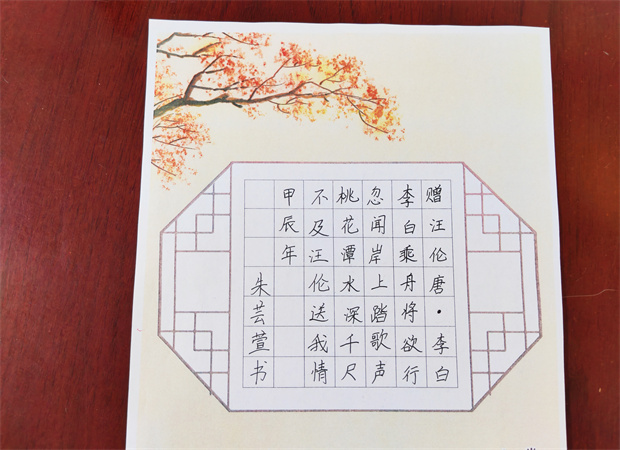 赠汪伦唐·李白
李白乘舟将欲行
忽闻岸上踏歌声
桃花潭水深千尺
不及汪伦送我情
甲辰年
朱芸萱书